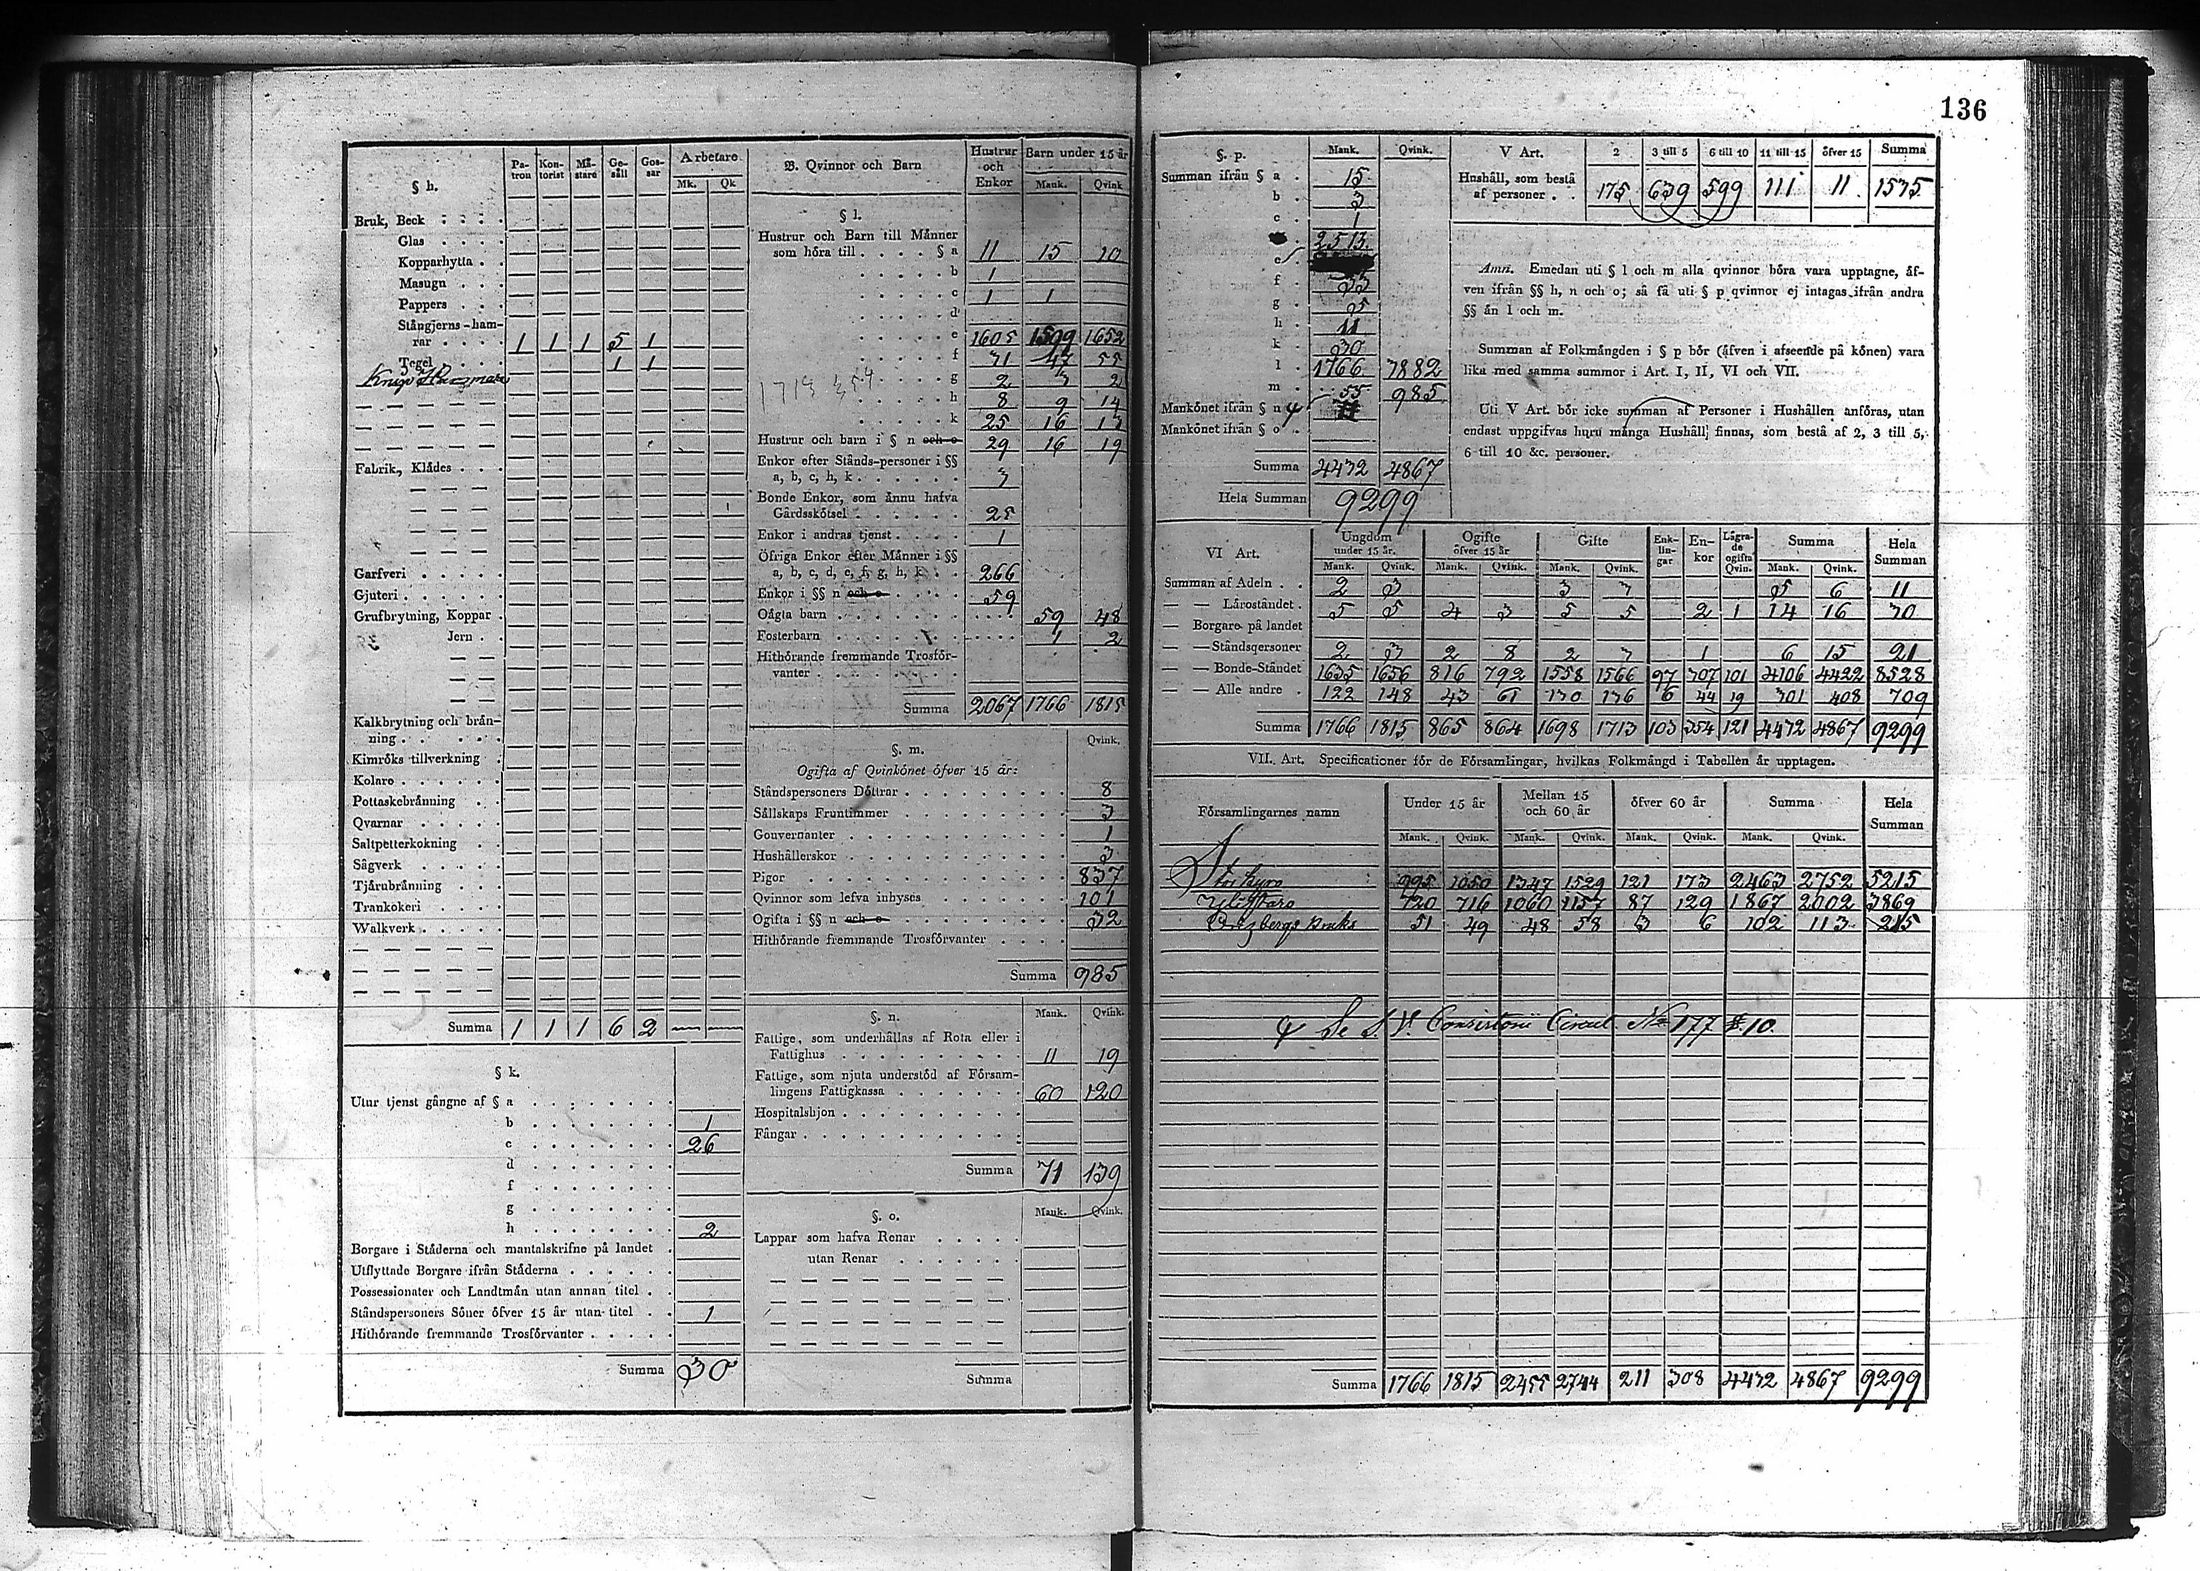 136
§ h. Pa-tron Kon-torist Mä-stare Ge-säll Gos-sar Arbetare Mk. Qk
Bruk, Beck
Glas
Kopparhytta
Masugn
Pappers
Stångjerns-ham-
rar 1 1 1 5 1
Tegel 1 1
Fabrik, Klädes
Garfveri
Gjuteri
Grufbrytning, Koppar
Jern
Kalkbrytning och brän-
ning
Kimröks tillverkning
Kolare
Pottaskebränning
Qvarnar
Saltpetterkokning
Sågverk
Tjärubränning
Trankokeri
Walkverk
Summa 1 1 1 6 2
§ k.
Utur tjenst gångne af § a
b 1
c 26
d
f
g
h 2
Borgare i Städerna och mantalskrifne på landet
Utflyttade Borgare ifrån Städerna
Possessionater och Landtmän utan annan titel
Ståndspersoners Söner öfver 15 år utan titel 1
Hithörande fremmande Trosförvanter
Summa 30
B. Qvinnor och Barn Hustrur och Enkor Barn under 15 år Mank. Qvink
§ l.
Hustrur och Barn till Männer
som höra till § a 11 15 10
b 1
c 1 1
d
e 1605 1599 1652
f 31 47 55
g 2 3 2
h 8 9 14
k 25 16 13
Hustrur och barn i § n och o 29 16 19
Enkor efter Stånds-personer i §§
a, b, c, h, k 3
Bonde Enkor, som ännu hafva
Gårdsskötsel 25
Enkor i andras tjenst 1
Öfriga Enkor efter Männer i §§
a, b, c, d, e, f, g, h, k 266
Enkor i §§ n och o 59
Oägta barn 59 48
Fosterbarn 1 2
Hithörande fremmande Trosför-
vanter
Summa 2067 1766 1815
§. m. Qvink.
Ogifta af Qvinkönet öfver 15 år:
Ståndspersoners Döttrar 8
Sällskaps Fruntimmer 3
Gouvernanter 1
Hushållerskor 3
Pigor 837
Qvinnor som lefva inhyses 101
Ogifta i §§ n och o 32
Hithörande fremmande Trosförvanter
Summa 985
§. n. Mank. Qvink.
Fattige, som underhållas af Rota eller i
Fattighus 11 19
Fattige, som njuta understöd af Försam-
lingens Fattigkassa 60 120
Hospitalshjon
Fångar
Summa 71 139
§. o. Mank. Qvink.
Lappar som hafva Renar
utan Renar
Summa
§. p. Mank. Qvink.
Summan ifrån § a 15
b 3
c 1
2513
e
f 33
g 5
h 11
k 30
l 1766 3882
m 55 985
Mankönet ifrån § n
Mankönet ifrån § o
Summa 4432 4867
Hela Summan 9299
V Art. 2 3 till 5 6 till 10 11 till 15 öfver 15 Summa
Hushåll, som bestå
af personer 175 639 599 111 11 1535
Anm. Emedan uti § l och m alla qvinnor böra vara upptagne, äf-
ven ifrån §§ h, n och o; så få uti § p qvinnor ej intagas ifrån andra
§§ än l och m.
Summan af Folkmängden i § p bör (äfven i afseende på könen) vara
lika med samma summor i Art. I, II, VI och VII.
Uti V Art. bör icke summan af Personer i Hushållen anföras, utan
endast uppgifvas huru många Hushåll finnas, som bestå af 2, 3 till 5,
6 till 10 &c. personer.
VI Art. Ungdom under 15 år. Ogifte öfver 15 år Gifte Enk-lin-gar En-kor Lägra-de ogifta Qvin. Summa Hela Summan
Mank. Qvink. Mank. Qvink. Mank. Qvink. Mank. Qvink.
Summan af Adeln 2 3 3 3 5 6 11
— — Läroståndet 5 5 4 3 5 5 2 1 14 16 30
— Borgare på landet
— — Ståndspersoner 2 3 2 8 2 3 1 6 15 21
— — Bonde-Ståndet 1635 1656 816 792 1558 1566 97 307 101 4106 4422 8528
— — Alle andre 122 148 43 61 130 136 6 44 19 301 408 709
Summa 1766 1815 865 864 1698 1713 103 354 121 4432 4867 9299
VII. Art. Specificationer för de Församlingar, hvilkas Folkmängd i Tabellen är upptagen.
Församlingarnes namn Under 15 år Mellan 15 och 60 år öfver 60 år Summa Hela Summan
Mank. Qvink. Mank. Qvink. Mank. Qvink. Mank. Qvink.
Storkyro 995 1050 1347 1529 121 173 2463 2752 5215
Ylistaro 720 716 1060 1157 87 129 1867 2002 3869
Orisbergs Bruks 51 49 48 58 3 6 102 113 215
Se S. V. Consistorii Circul. No 177 § 10.
Summa 1766 1815 2455 2744 211 308 4432 4867 9299